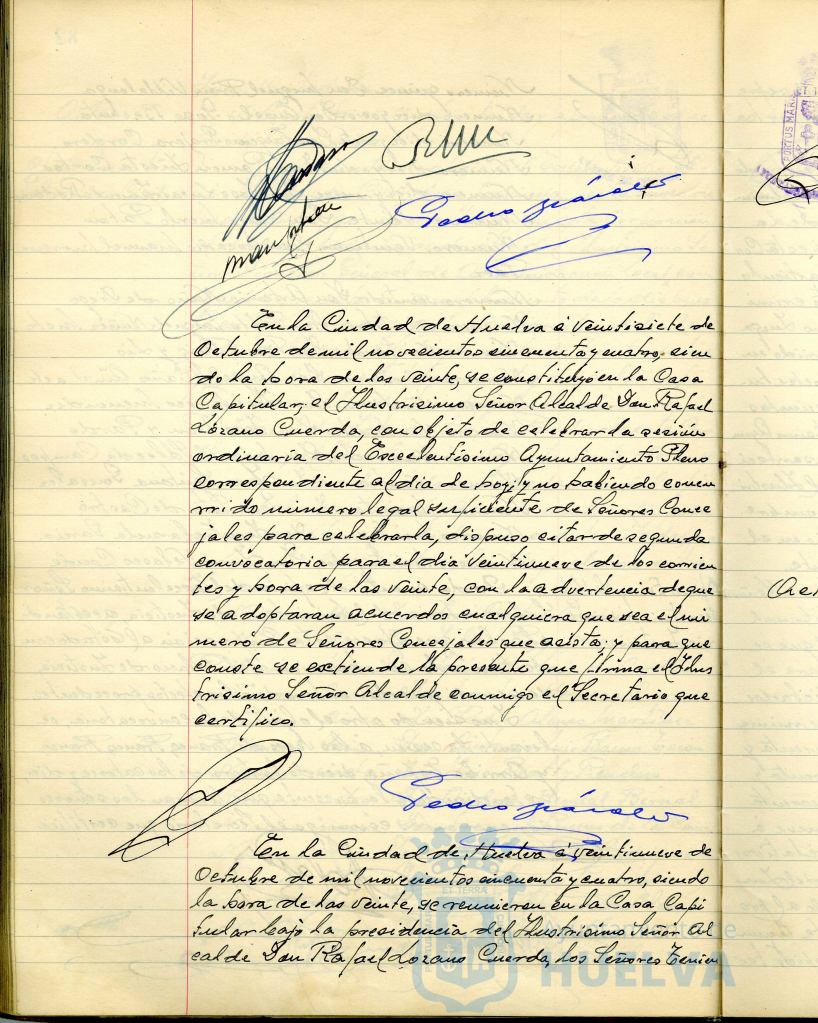 Pedro
En la Ciudad de Huelva á veintisiete de
Octubre de mil novecientos cincuenta y cuatro, sien
do la hora de las veinte, se constituyó en la Casa
Capitular, el Ilustrisimo Señor Alcalde Don Rafael
Lozano Cuerda, con objeto de celebrar la sesión
ordinaria del Excelentísimo Ayuntamiento Pleno
correspondiente al dia de hoy; y no habiendo concu
rrido número legal suficiente de Señores Conce
jales para celebrarla, dispuso citar de segunda
convocatoria para el dia veintinueve de los corrien
tes y hora de las veinte, con la advertencia de que
se adoptaran acuerdos cualquiera que sea el nú
mero de Señores Concejales que asista; y para que
conste se extiende la presente que firma el Ilus
trisimo Señor Alcalde conmigo el Secretario que
certifico.
Pedro
En la Ciudad de Huelva á veintinueve de
Octubre de mil novecientos cincuenta y cuatro, siendo
la hora de las veinte, se reunieron en la Casa Capi
tular bajo la presidencia del Ilustrisimo Señor Al
calde Don Rafael Lozano Cuerda, los Señores Tenien
HUELVA
PORTUS MARIS